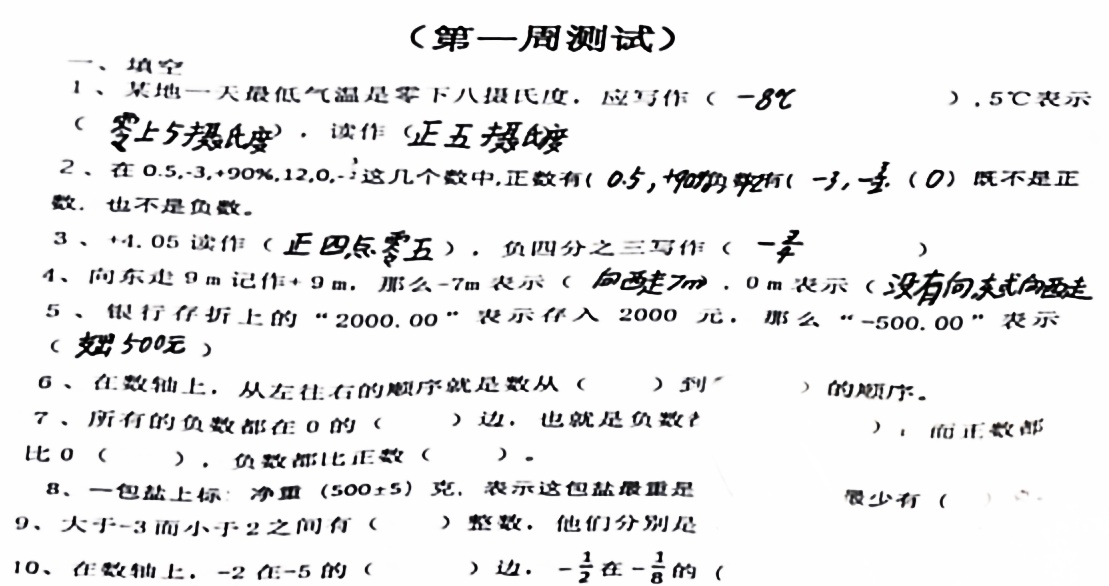 （第一周测试）
一、填空
1、某地一天最低气温是零下八摄氏度，应写作（ -8℃ ），5℃表示
（ 零上5摄氏度），读作（正五摄氏度
2、在 0.5,-3,+90%,12,0,- 这几个数中,正数有( 0.5, +90% 负数有( -3, （0）既不是正
数，也不是负数。
3、+4.05 读作（正四点零五），负四分之三写作（ -3/4 ）
4、向东走 9 m 记作+ 9 m，那么-7m 表示（ 向西走7m），0 m 表示（没有向东或向西走
5、银行存折上的“2000.00”表示存入 2000 元，那么“-500.00”表示
（ 支出500元 ）
6、在数轴上，从左往右的顺序就是数从（ ）到 ）的顺序。
7、所有的负数都在 0 的（ ）边，也就是负数 ），而正数都
比 0（ ），负数都比正数（ ）。
8、一包盐上标：净重（500±5）克，表示这包盐最重是 最少有（ ）
9、大于-3 而小于 2 之间有（ ）整数，他们分别是
10、在数轴上，-2 在-5 的（ ）边，-1/2 在 -1/8 的（